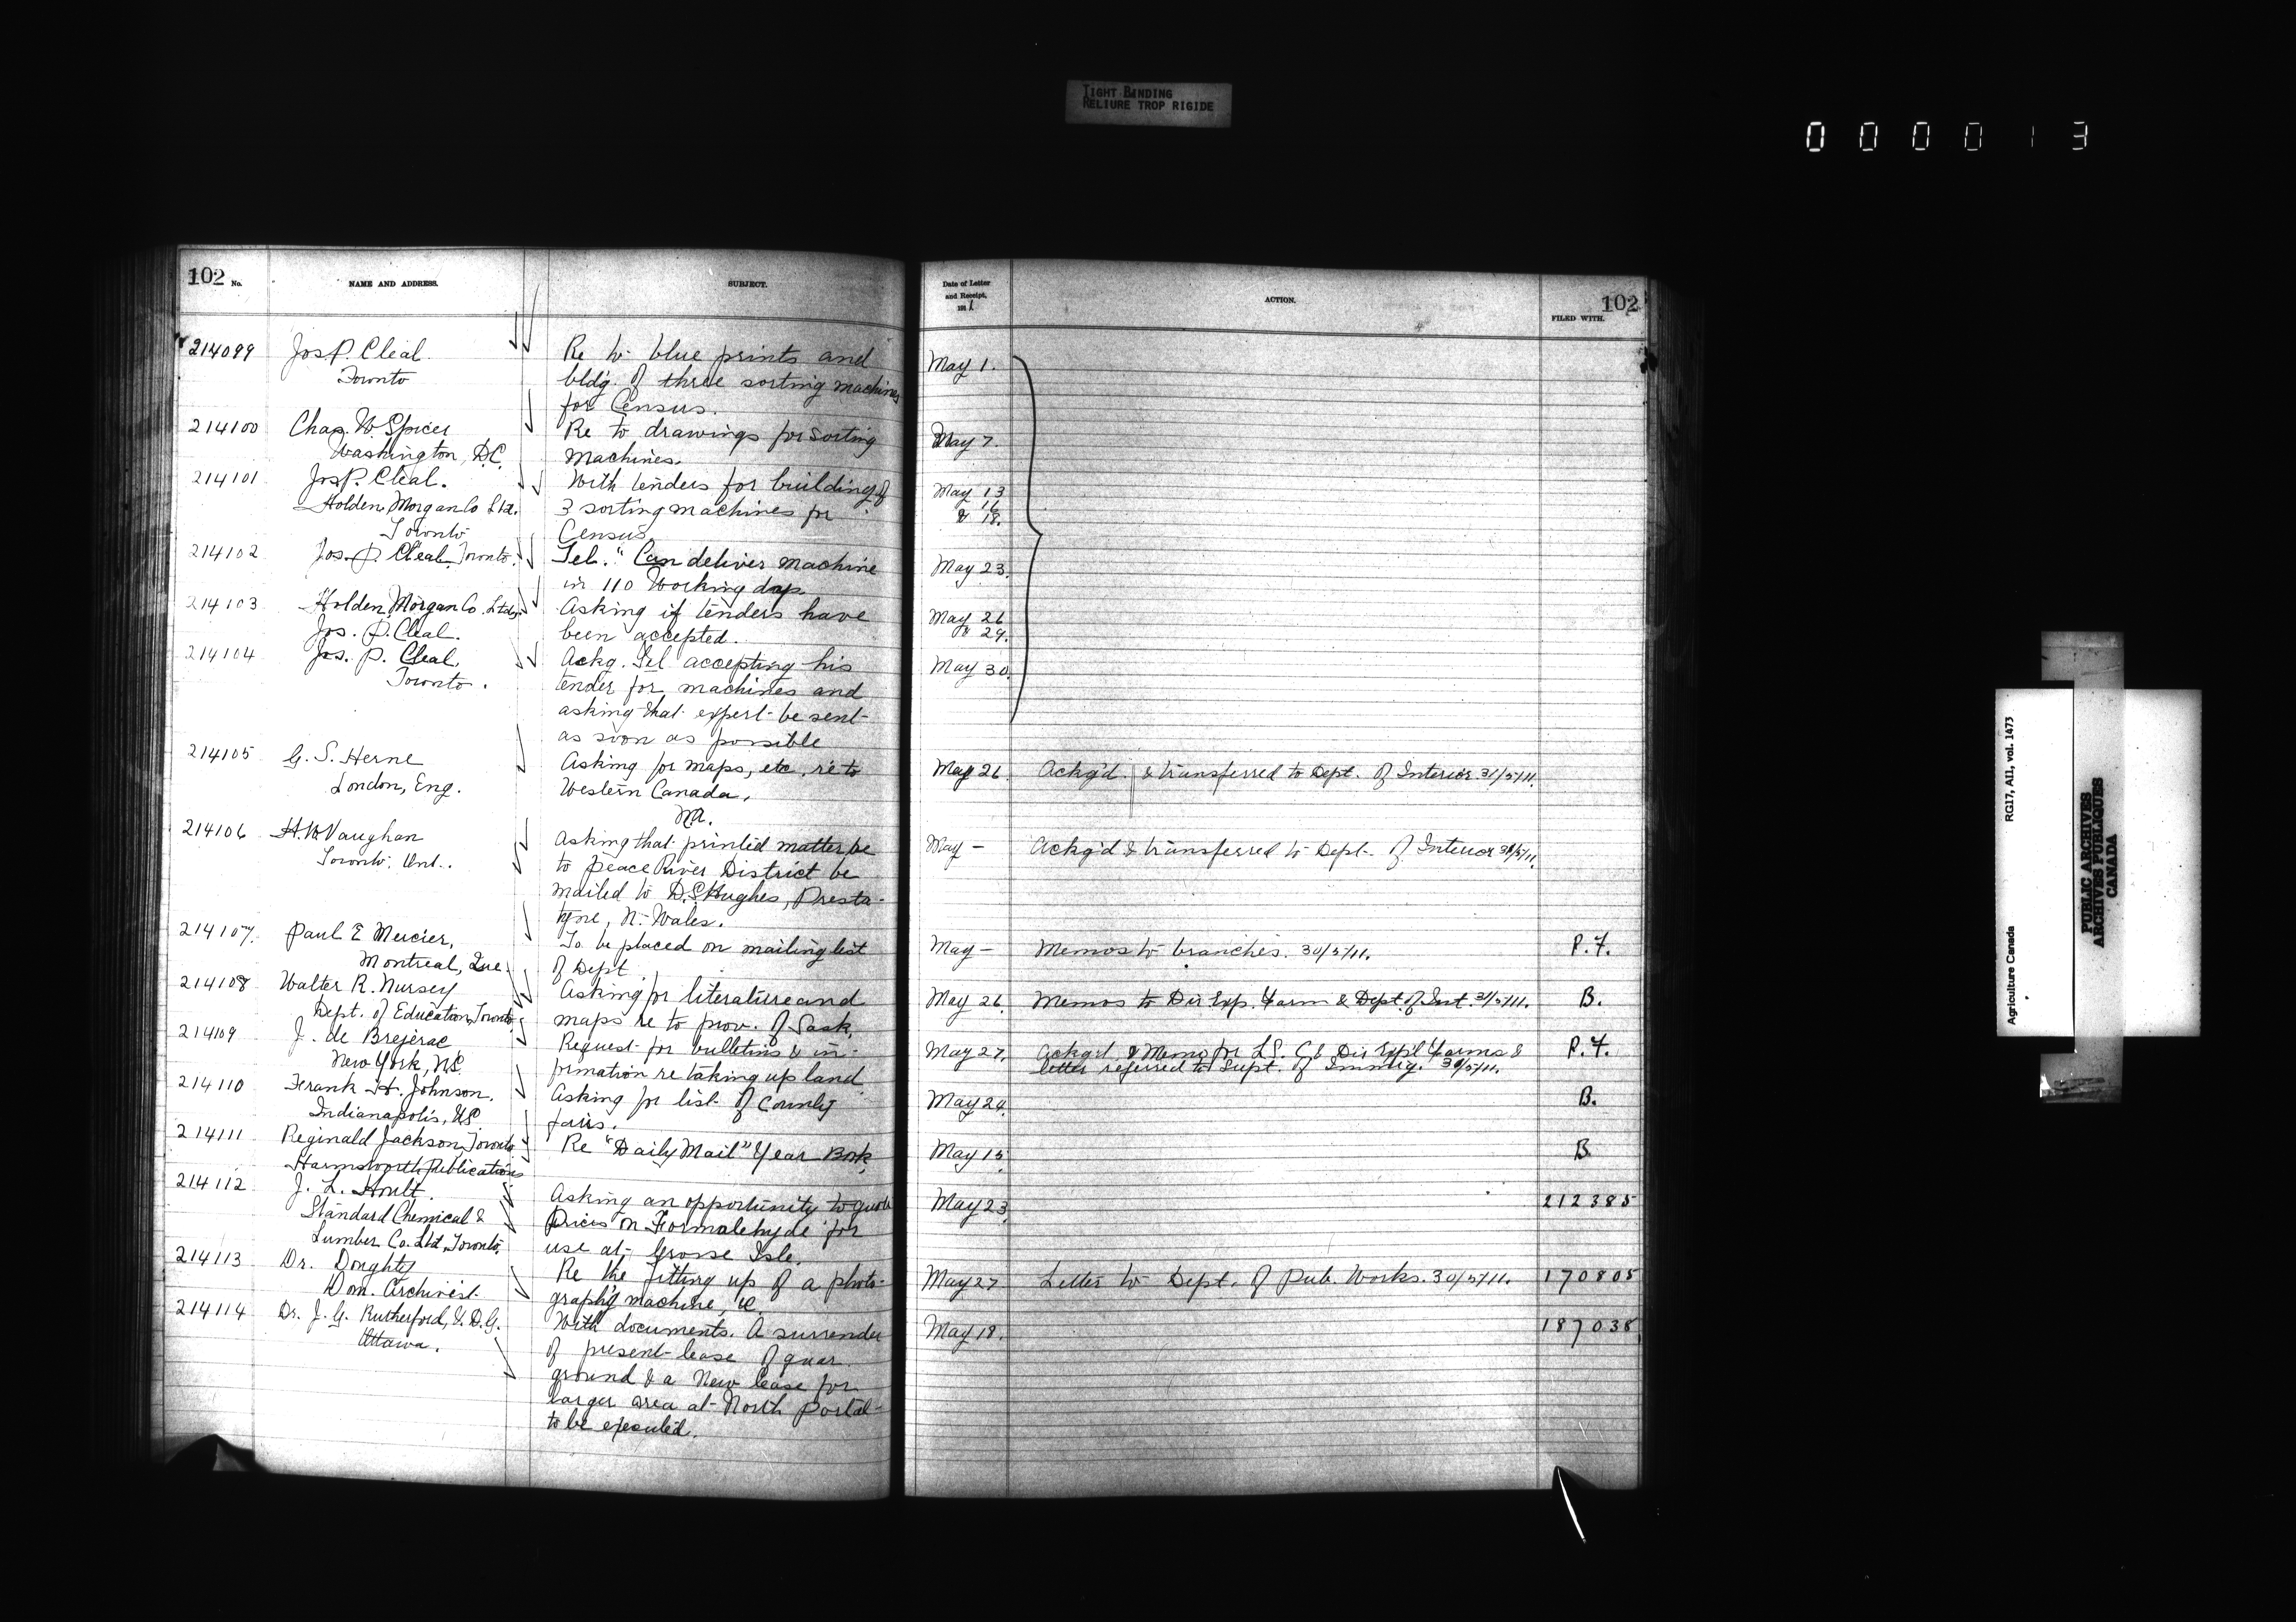 TIGHT BINDING
RELIURE TROP RIGIDE
0 0 0 0 1 3
102 No. NAME AND ADDRESS. SUBJECT.
214099 Jos P. Cleal. Re to blue prints and
Toronto bldg. of three sorting machines
for Census.
214100 Chas. W. Spicer Re to drawings for sorting
Washington, D.C. machines.
214101 Jos P. Cleal. With tenders for building of
Holden, Morgan Co Ltd. 3 sorting machines for
Toronto Census
214102 Jos. P. Cleal, Toronto. Tel. "Can deliver machine
in 110 working days.
214103 Holden, Morgan Co. Ltd. Asking if tenders have
Jos. P. Cleal. been accepted.
214104 Jos. P. Cleal. Ackg. Tel. accepting his
Toronto. tender for machines and
asking that expert be sent
as soon as possible
214105 G. S. Herne Asking for maps, etc. re to
London, Eng. Western Canada.
214106 H. W. Vaughan Asking that printed matter re
Toronto, Ont. to Peace River District be
mailed to D. S. Hughes, Presta-
tyne, N. Wales.
214107. Paul E Mercier, To be placed on mailing list
Montreal, Que. of Dept
214108 Walter R. Nursey Asking for literature and
Dept. of Education, Toronto. maps re to prov. of Sask.
214109 J. de Brejerac Request for bulletins & in-
New York, formation re taking up land
214110 Frank H. Johnson. Asking for list of County
Indianapolis, US. fairs.
214111 Reginald Jackson, Toronto Re "Daily Mail" Year Book,
Harmsworth Publications
214112 J. L. Hoult. Asking an opportunity to quote
Standard Chemical & Prices on Formalehyde for
Lumber Co. Ltd, Toronto. use at Grosse Isle.
214113 Dr. Doughty Re the fitting up of a photo-
Dom. Archivist. graph'g machine, &c.
214114 Dr. J. G. Rutherford, V. D. G. With documents. A surrender
Ottawa. of present lease of quar
ground & a New lease for
larger area at North Portal
to be executed.
Date of Letter
and Receipt, ACTION. 102
1911 FILED WITH.
May 1.
May 7.
May 13
16
& 18.
May 23.
May 26
& 29.
May 30.
May 26 Ackg'd & transferred to Dept. of Interior 31/5/11.
May - Ackg'd & transferred to Dept. of Interior 31/5/11.
May - Memos to branches. 30/5/11. P. F.
May 26 Memos to Dir. Exp. Farm & Dept. of Int. 31/5/11. B.
May 27. Ackg'd & Memo for L.S. C & Dir Exp'l Farms & P. F.
letter referred to Supt. of Immig. 30/5/11.
May 24 B.
May 15 B.
May 23 212385
May 27 Letter to Dept. of Pub. Works. 30/5/11. 170805
May 18. 187038
Agriculture Canada RG17, AII, vol. 1473
PUBLIC ARCHIVES
ARCHIVES PUBLIQUES
CANADA